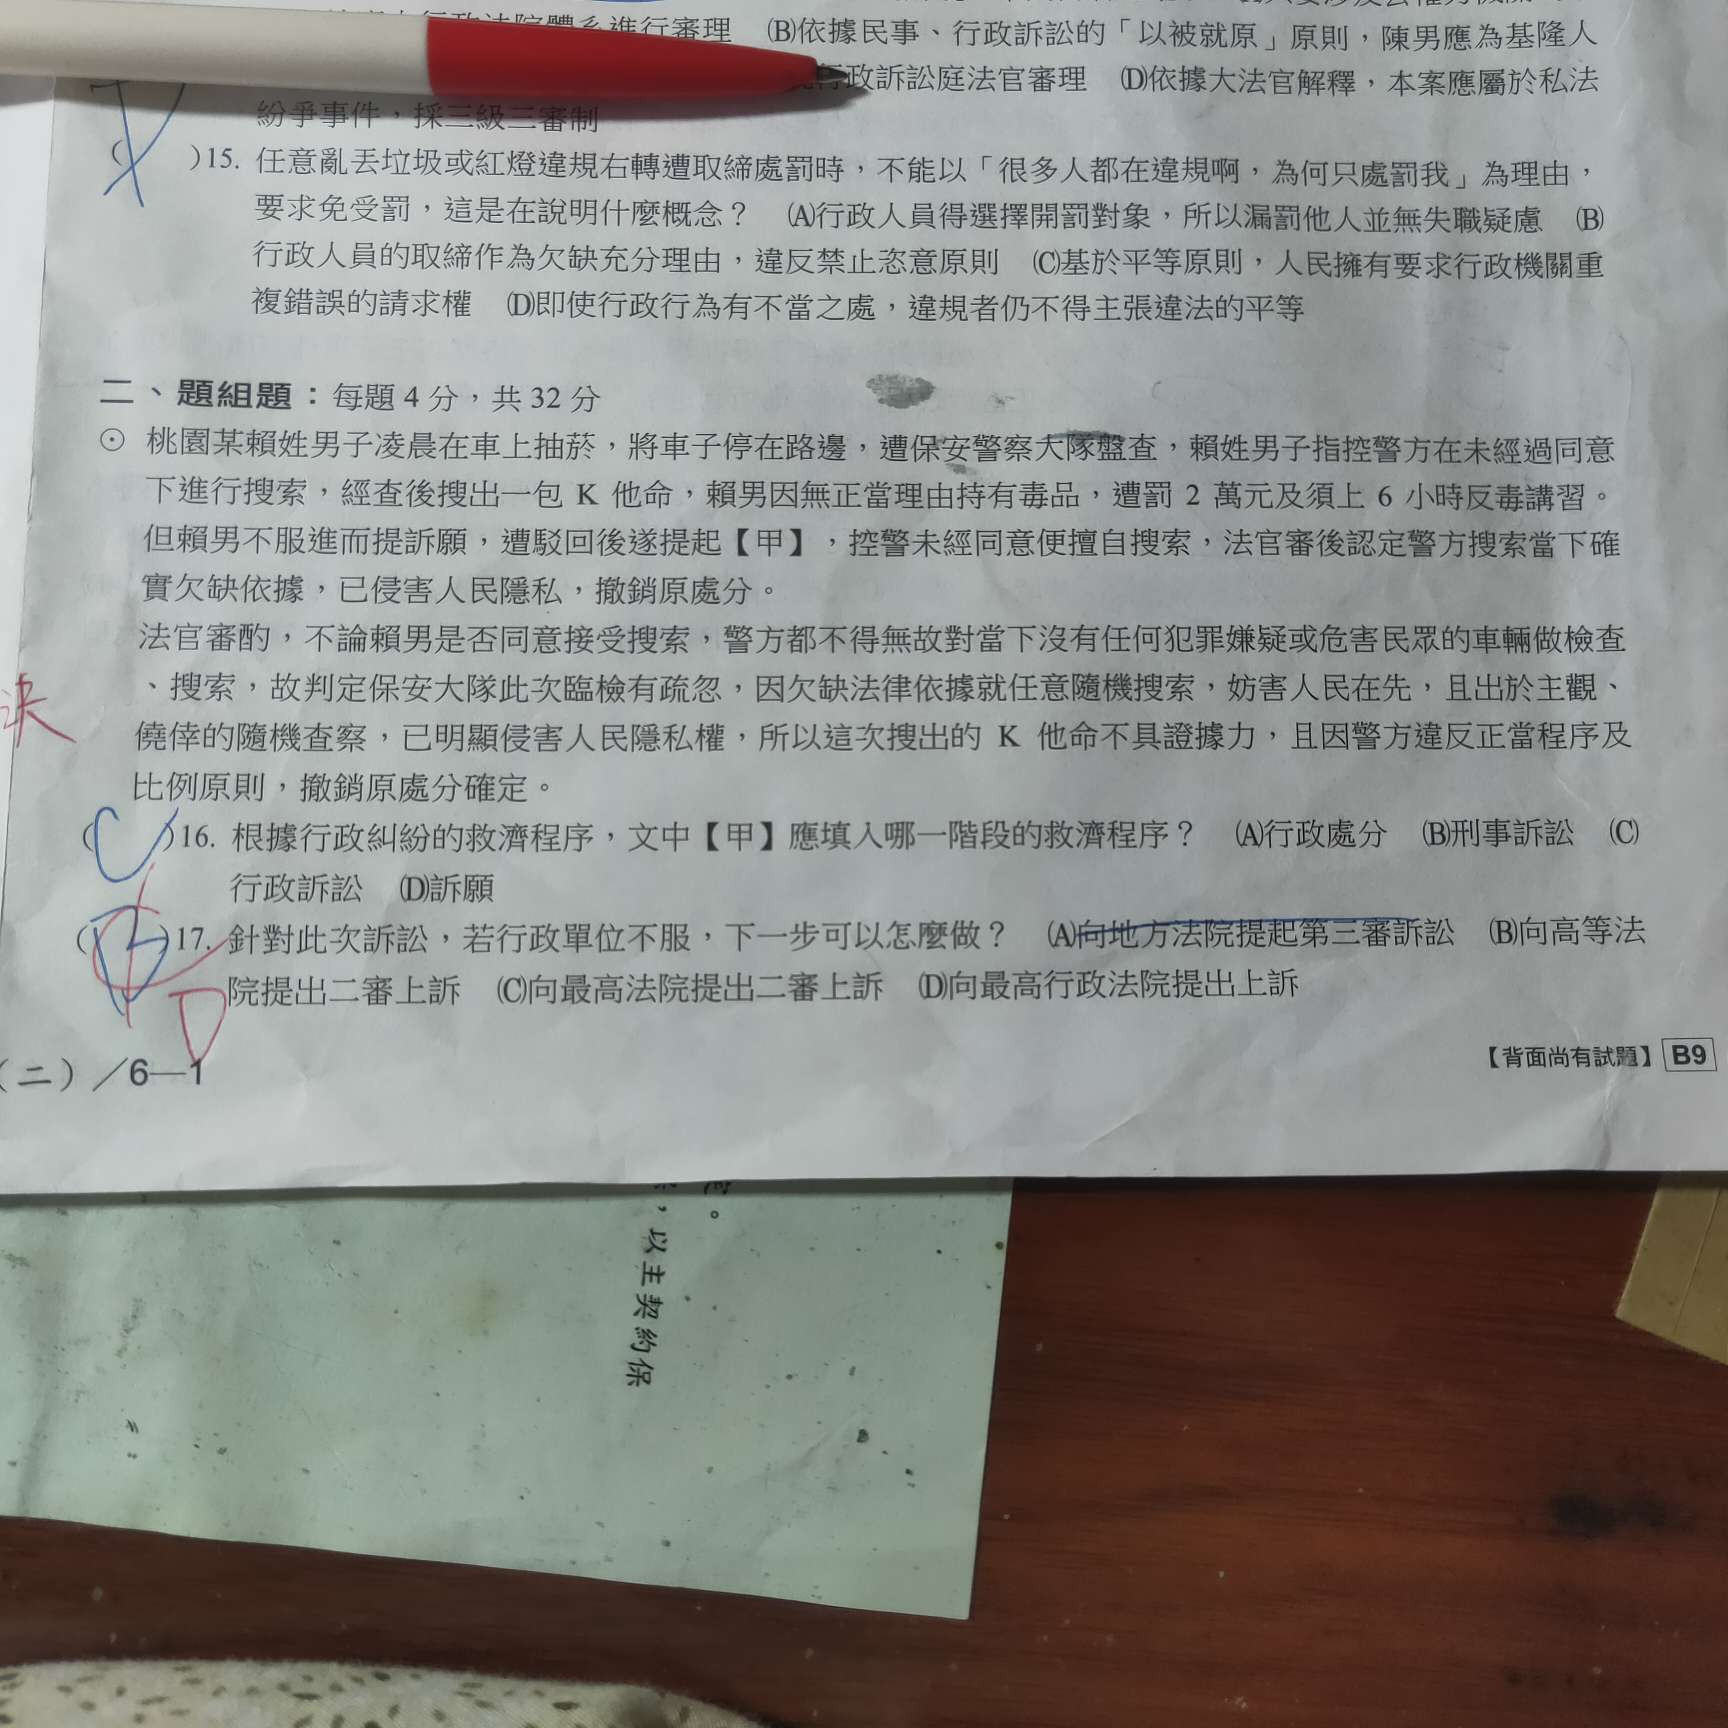 行政法院體系進行審理 (B)依據民事、行政訴訟的「以被就原」原則，陳男應為基隆人
行政訴訟庭法官審理 (D)依據大法官解釋，本案應屬於私法
紛爭事件，採三級三審制
( )15. 任意亂丟垃圾或紅燈違規右轉遭取締處罰時，不能以「很多人都在違規啊，為何只處罰我」為理由，
要求免受罰，這是在說明什麼概念？ (A)行政人員得選擇開罰對象，所以漏罰他人並無失職疑慮 (B)
行政人員的取締作為欠缺充分理由，違反禁止恣意原則 (C)基於平等原則，人民擁有要求行政機關重
複錯誤的請求權 (D)即使行政行為有不當之處，違規者仍不得主張違法的平等
二、題組題：每題 4 分，共 32 分
⊙ 桃園某賴姓男子凌晨在車上抽菸，將車子停在路邊，遭保安警察大隊盤查，賴姓男子指控警方在未經過同意
下進行搜索，經查後搜出一包 K 他命，賴男因無正當理由持有毒品，遭罰 2 萬元及須上 6 小時反毒講習。
但賴男不服進而提訴願，遭駁回後遂提起【甲】，控警未經同意便擅自搜索，法官審後認定警方搜索當下確
實欠缺依據，已侵害人民隱私，撤銷原處分。
法官審酌，不論賴男是否同意接受搜索，警方都不得無故對當下沒有任何犯罪嫌疑或危害民眾的車輛做檢查
、搜索，故判定保安大隊此次臨檢有疏忽，因欠缺法律依據就任意隨機搜索，妨害人民在先，且出於主觀、
決
僥倖的隨機查察，已明顯侵害人民隱私權，所以這次搜出的 K 他命不具證據力，且因警方違反正當程序及
比例原則，撤銷原處分確定。
( C )16. 根據行政糾紛的救濟程序，文中【甲】應填入哪一階段的救濟程序？ (A)行政處分 (B)刑事訴訟 (C)
行政訴訟 (D)訴願
( B )17. 針對此次訴訟，若行政單位不服，下一步可以怎麼做？ (A)向地方法院提起第三審訴訟 (B)向高等法
D 院提出二審上訴 (C)向最高法院提出二審上訴 (D)向最高行政法院提出上訴
（二）／6—1
【背面尚有試題】 B9
，以主契約保